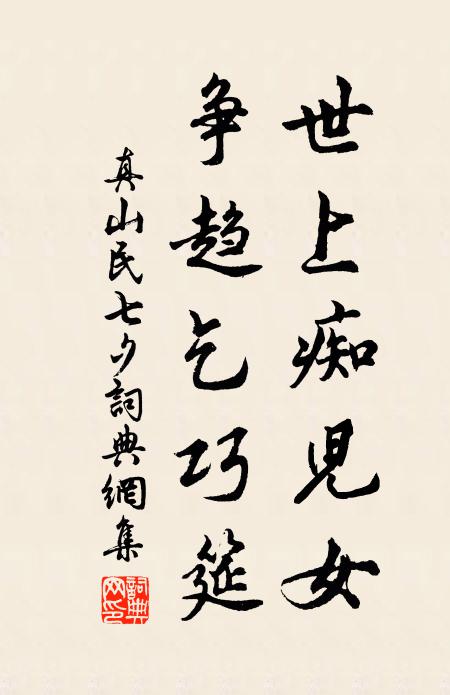 世上痴児女
争趋乞巧筵
真山民七夕詞典網集
詞典网印